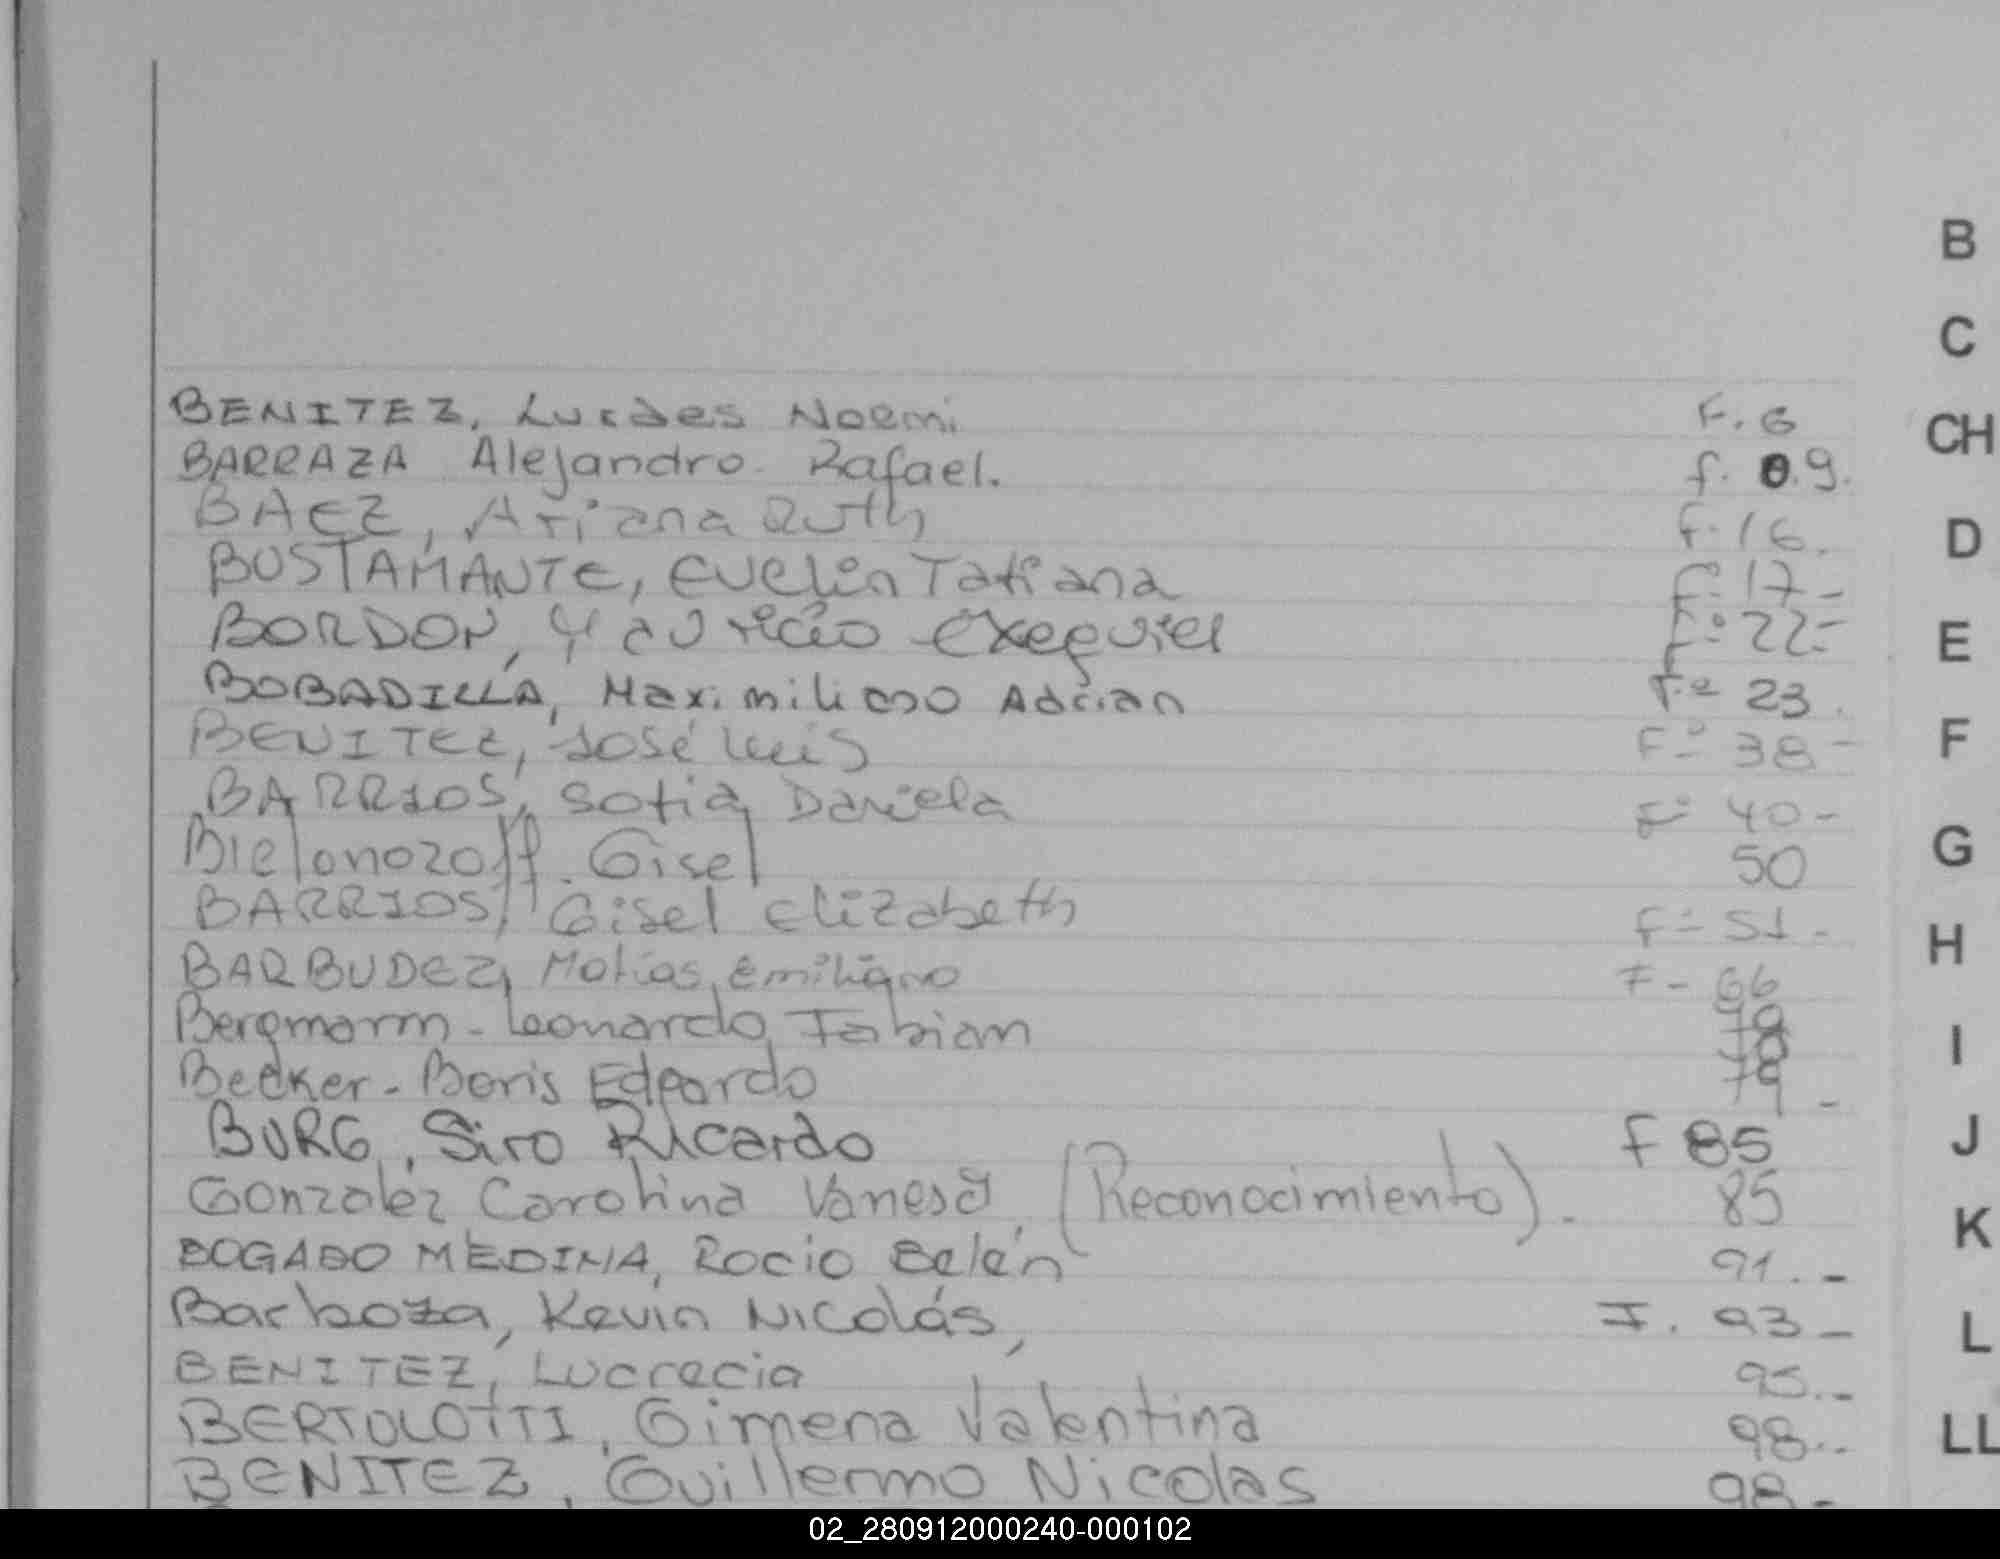 BENITEZ, Lurdes Noemi F. 6
BARRAZA Alejandro. Rafael. f. 0.9.
BAEZ, Ariana Ruth F. 16.
BUSTAMANTE, Evelin Tatiana Fº 17-
BORDON, Mauricio Exequiel Fº 22-
BOBADILLA, Maximiliano Adrian Fº 23.
BENITEZ, José Luis Fº 38-
BARRIOS, Sofia Daniela Fº 40-
Bielonozoff. Gisel 50
BARRIOS, Gisel Elizabeth F- 51-
BARBUDEZ, Matias Emiliano F- 66
Bergmann - Leonardo Fabian
Becker - Boris Edgardo 79 -
BURG, Siro Ricardo F 85
Gonzalez Carolina Vanesa (Reconocimiento). 85
BOGADO MEDINA, Rocio Belén 91.-
Barboza, Kevin Nicolás, F. 93-
BENITEZ, Lucrecia 95.-
BERTOLOTTI, Gimena Valentina 98..
BENITEZ, Guillermo Nicolas 98-
B
C
CH
D
E
F
G
H
I
J
K
L
LL
02_280912000240-000102